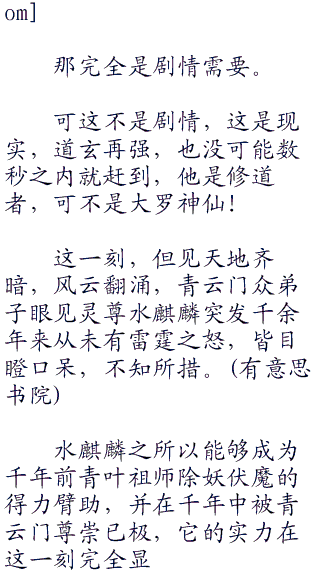 om]
那完全是剧情需要。
可这不是剧情，这是现
实，道玄再强，也没可能数
秒之内就赶到，他是修道
者，可不是大罗神仙！
这一刻，但见天地齐
暗，风云翻涌，青云门众弟
子眼见灵尊水麒麟突发千余
年来从未有雷霆之怒，皆目
瞪口呆，不知所措。(有意思
书院)
水麒麟之所以能够成为
千年前青叶祖师除妖伏魔的
得力臂助，并在千年中被青
云门尊崇已极，它的实力在
这一刻完全显